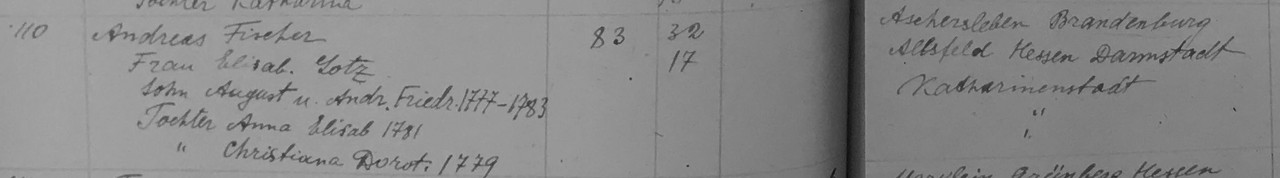 Tochter Katharina
110 Andreas Fischer 83 32 Aschersleben Brandenburg
Frau Elisab. Gotz 17 Allsfeld Hessen Darmstadt
Sohn August u. Andr. Friedr. 1777-1783 Katharinenstadt
Tochter Anna Elisab 1781 "
" Christiana Dorot. 1779 "
Grünberg Hessen